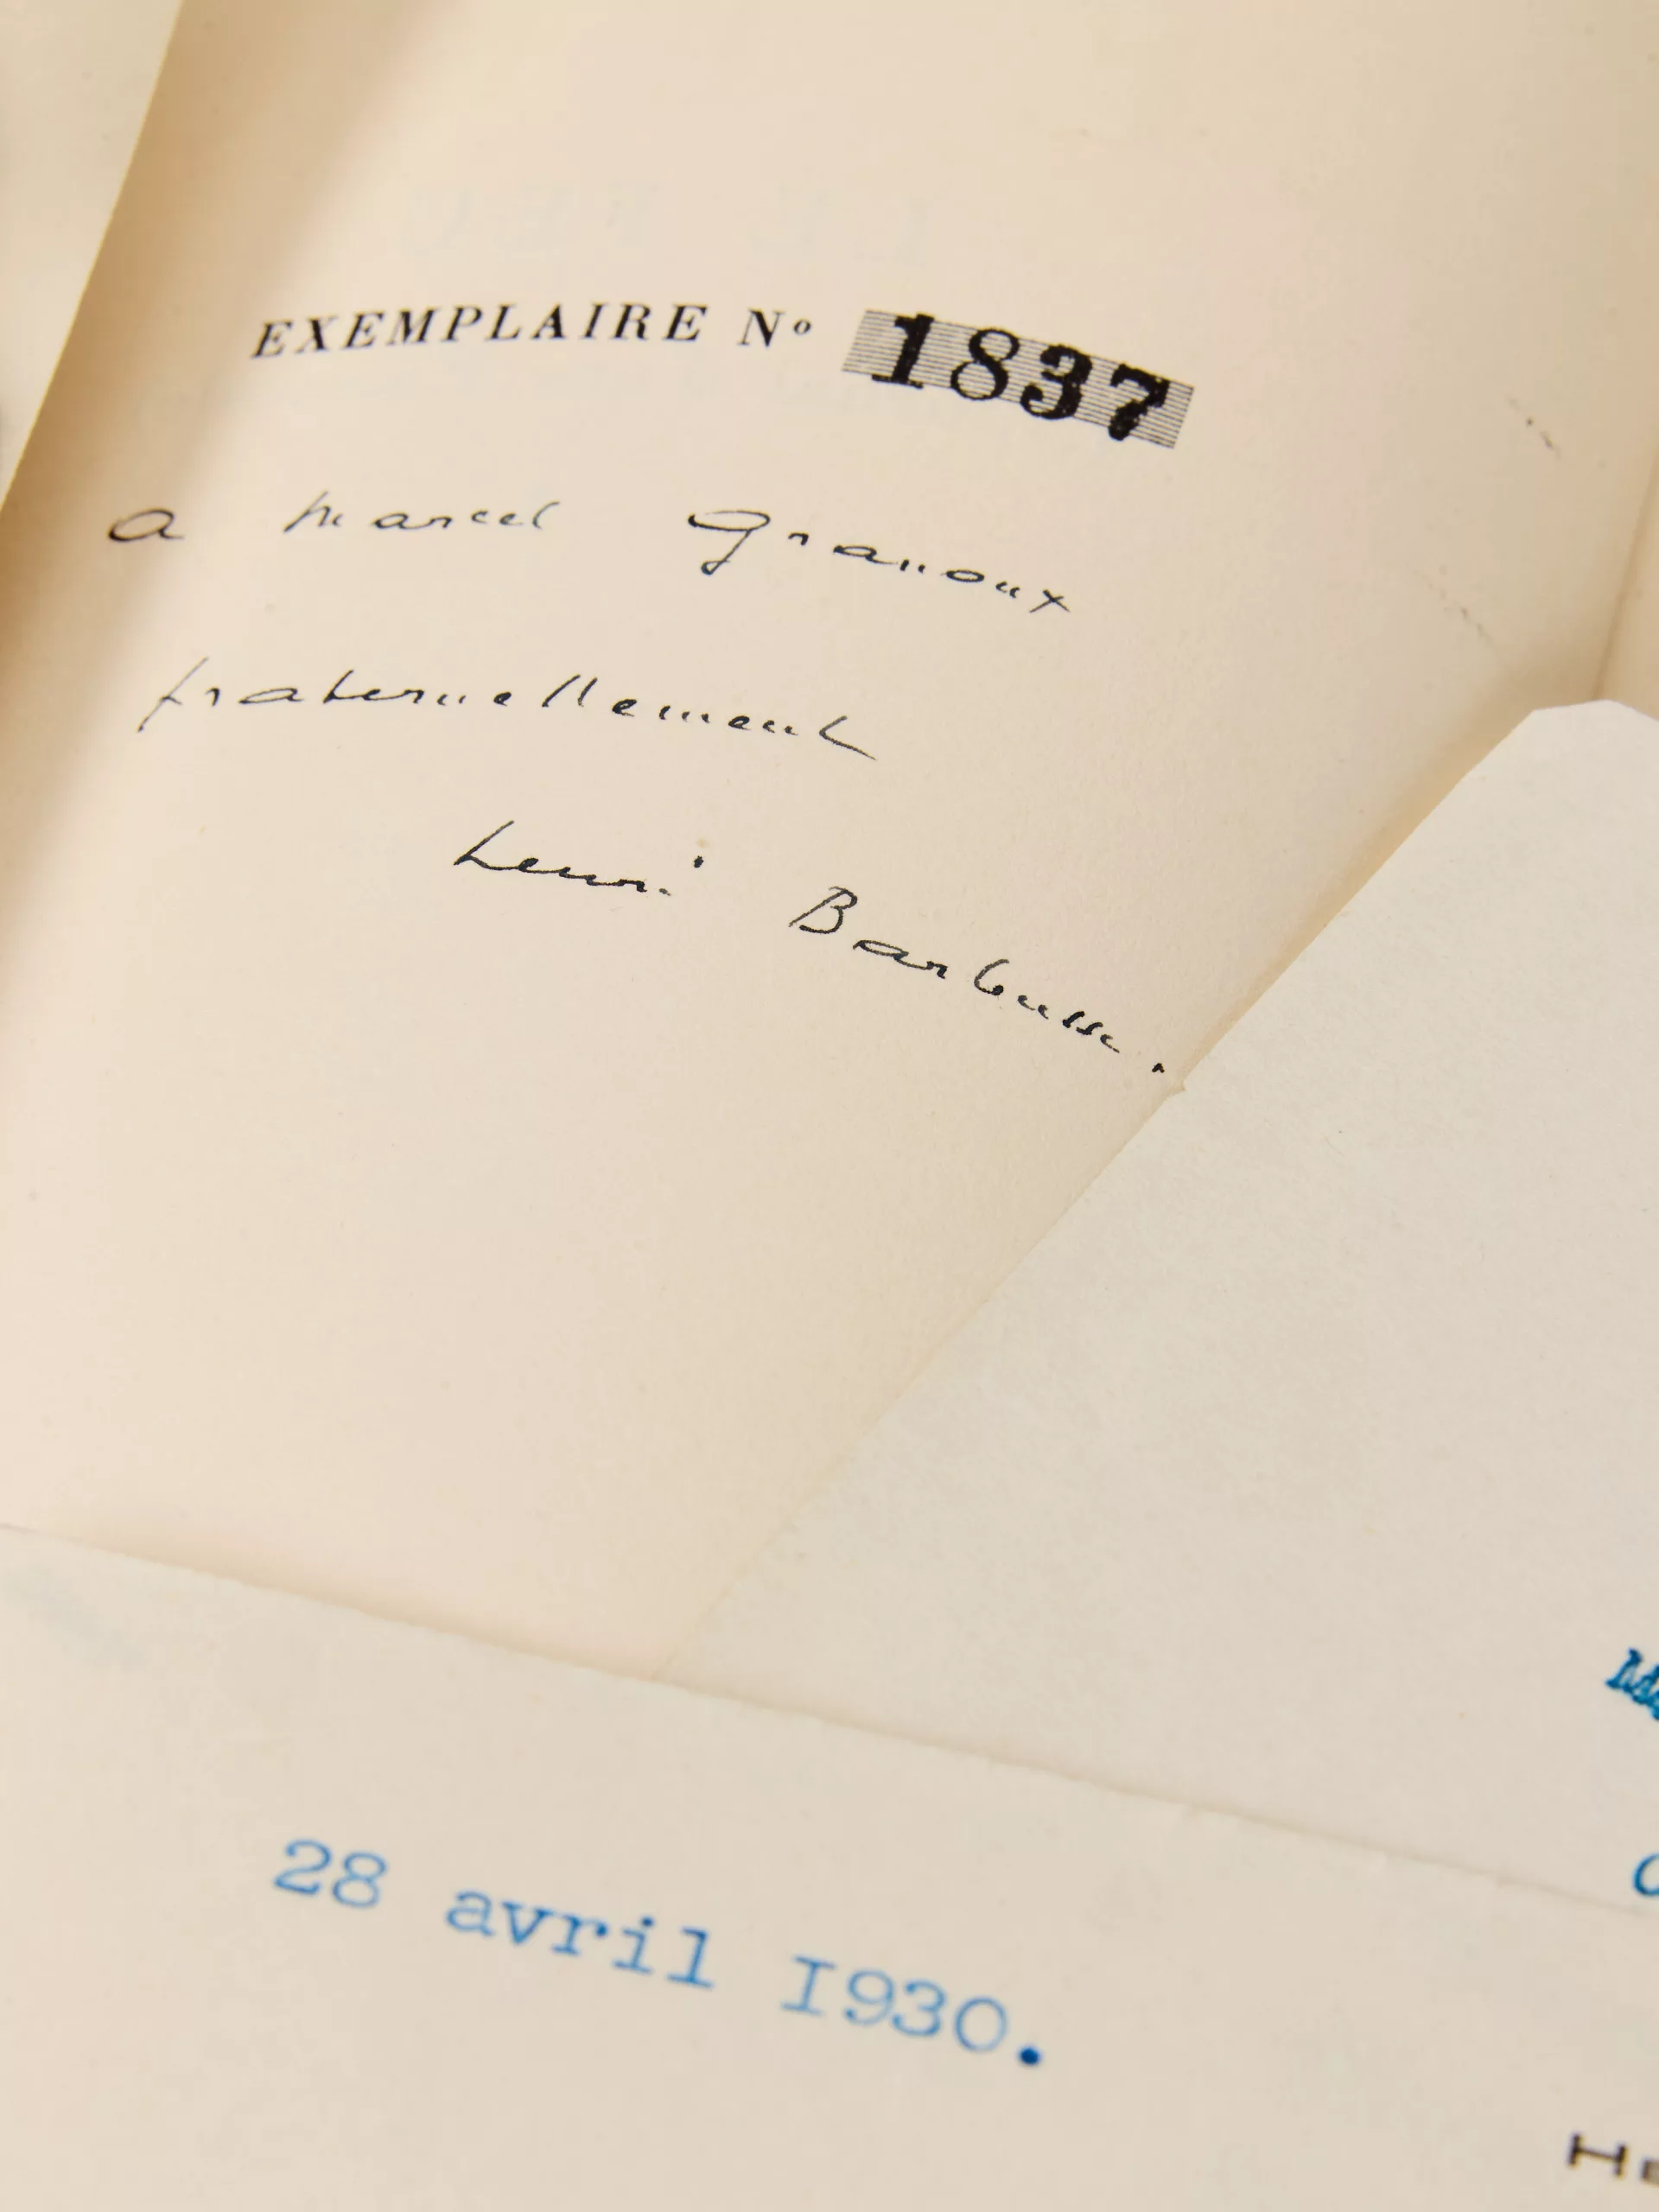 EXEMPLAIRE Nº 1837
a Marcel Granoux
fraternellement
Henri Barbusse.
28 avril I930.